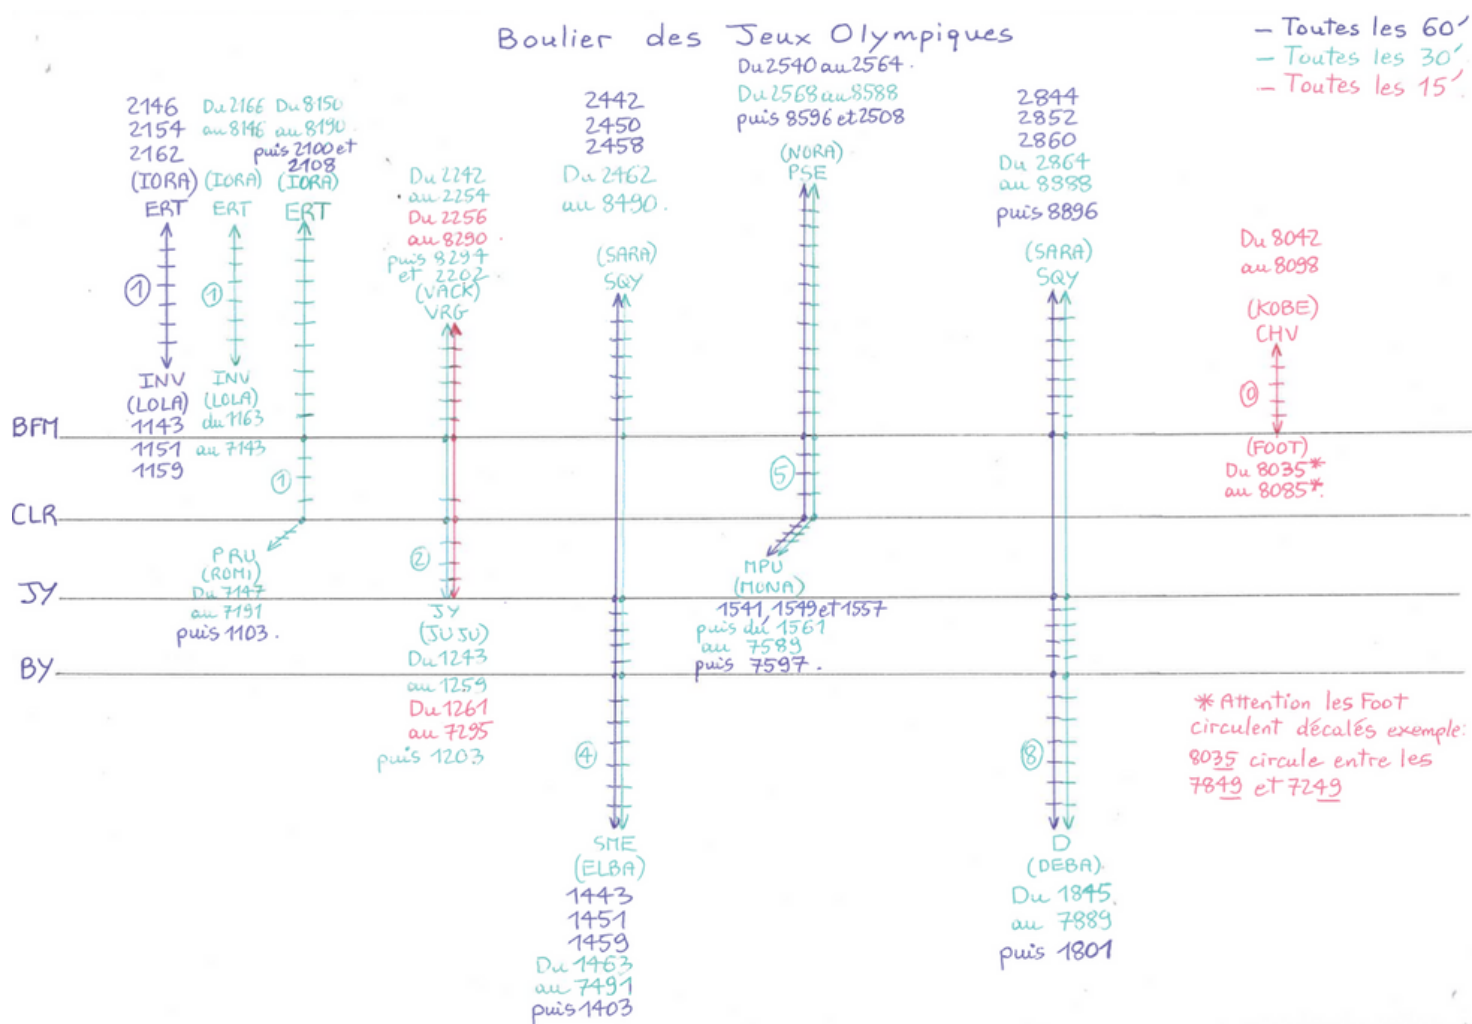 Boulier des Jeux Olympiques
— Toutes les 60'
— Toutes les 30'
— Toutes les 15'
2146
2154
2162
(IORA)
ERT
①
INV
(LOLA)
1143
1151
1159
Du 2166
au 8146
(IORA)
ERT
①
INV
(LOLA)
du 1163
au 7143
Du 8150
au 8190
puis 2100 et
2108
(IORA)
ERT
①
PRU
(ROMI)
Du 7147
au 7191
puis 1103.
Du 2242
au 2254
Du 2256
au 8290
puis 8294
et 2202
(VACK)
VRG
②
JY
(JUJU)
Du 1243
au 1259
Du 1261
au 7295
puis 1203
2442
2450
2458
Du 2462
au 8490.
(SARA)
SQY
④
SME
(ELBA)
1443
1451
1459
Du 1463
au 7491
puis 1403
Du 2540 au 2564.
Du 2568 au 8588
puis 8596 et 2508
(NORA)
PSE
⑤
MPU
(MONA)
1541, 1549 et 1557
puis du 1561
au 7589
puis 7597.
2844
2852
2860
Du 2864
au 8888
puis 8896
(SARA)
SQY
⑧
D
(DEBA)
Du 1845
au 7889
puis 1801
Du 8042
au 8098
(KOBE)
CHV
⓪
(FOOT)
Du 8035*
au 8085*.
BFM
CLR
JY
BY
* Attention les Foot
circulent décalés exemple:
8035 circule entre les
7849 et 7249